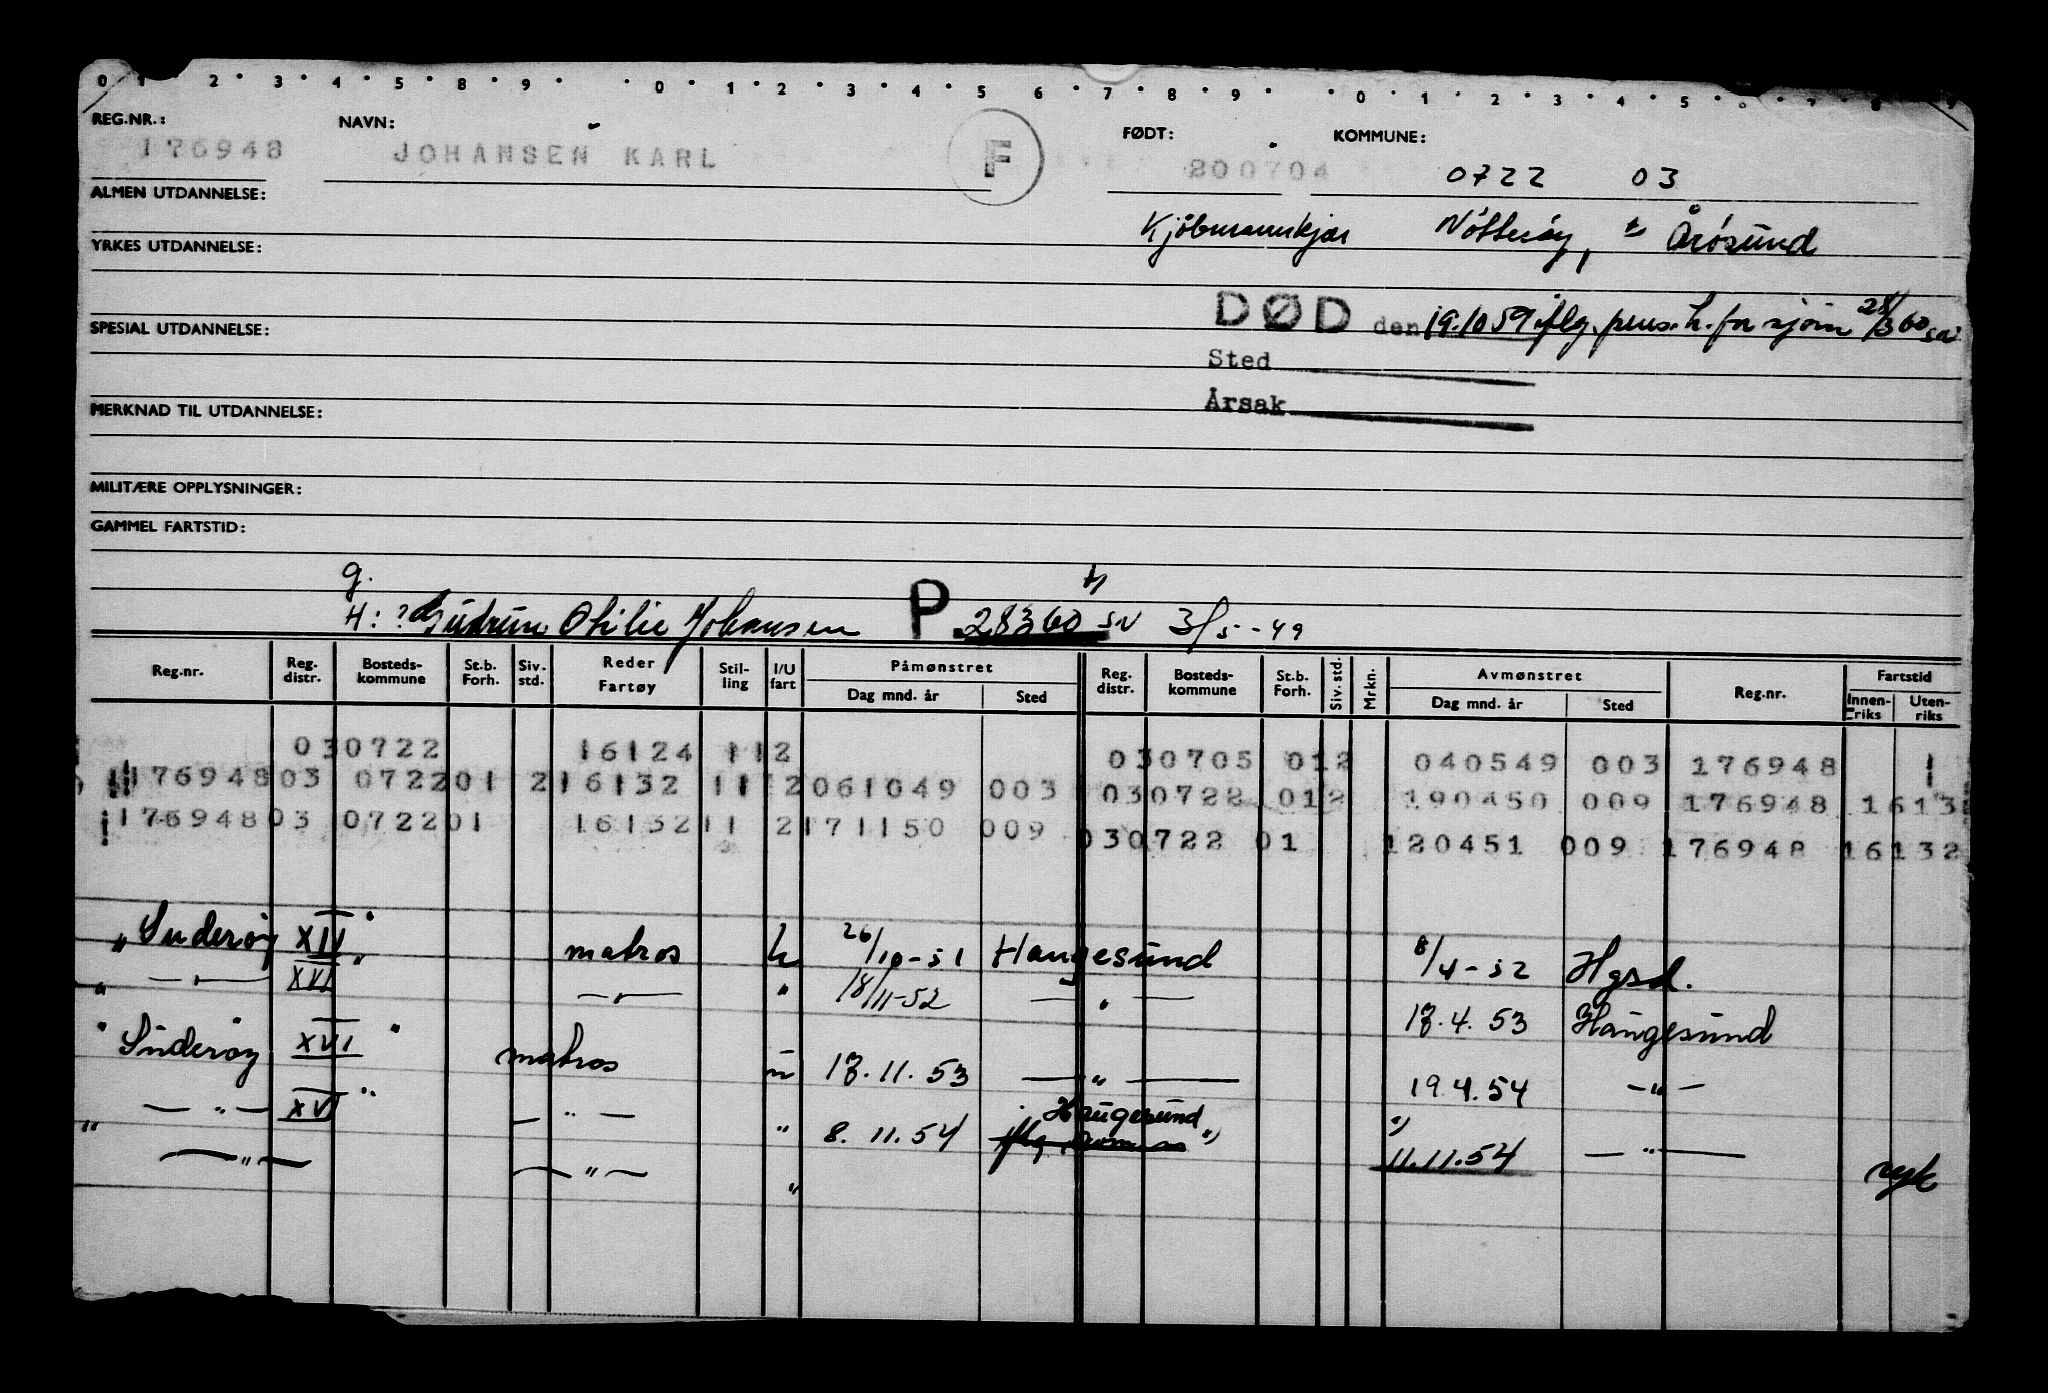 0 1 2 3 4 5 8 9 0 1 2 3 4 5 6 7 8 9 0 1 2 3 4 5
REG.NR.: NAVN: FØDT: KOMMUNE:
176948 JOHANSEN KARL F 200704 0722 03
ALMEN UTDANNELSE:
Kjöbmannskjær Nötteröy, Årösund
YRKES UTDANNELSE:
DØD den 19.10 59 iflg. pens. for sjöm 28/3 60 sn
SPESIAL UTDANNELSE:
Sted
Årsak
MERKNAD TIL UTDANNELSE:
MILITÆRE OPPLYSNINGER:
GAMMEL FARTSTID:
g.
H: ? Gudrun Otilie Johansen P 28360 sn 3/5-49
Reg.nr. Reg. distr. Bosteds- kommune St.b. Forh. Siv. std. Reder Fartøy Stil- ling I/U fart Påmønstret Dag mnd. år Sted Reg. distr. Bosteds- kommune St.b. Forh. Siv. std. Mrkn. Avmønstret Dag mnd. år Sted Reg.nr. Fartstid Innen- riks Uten- riks
030722 16124 112 030705 012 040549 003 176948 1
17694803 072201 216132 11 2061049 003 030722 012 190450 009 176948 1613
17694803 072201 1613211 2171150 009 030722 01 120451 009 176948 16132
"Suderöy XII" matros 26/10-51 Haugesund 8/4-52 Hgsd.
" — " — XVI" — " — " 18/11-52 — " — 17.4.53 Haugesund
"Suderöy XVI" matros u 17.11.53 — " — 19.4.54 — " —
" — " — XVI" — " — " 8.11.54 Haugesund 11.11.54 — " —
— " — — " — " syk